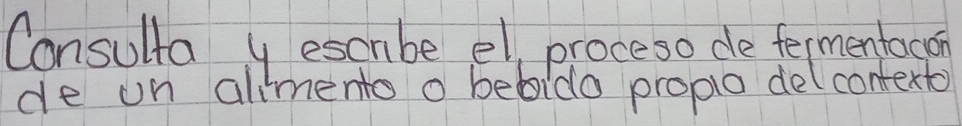 Consulta y escribe el proceso de fermentación
de un alimento o bebida propio del contexto